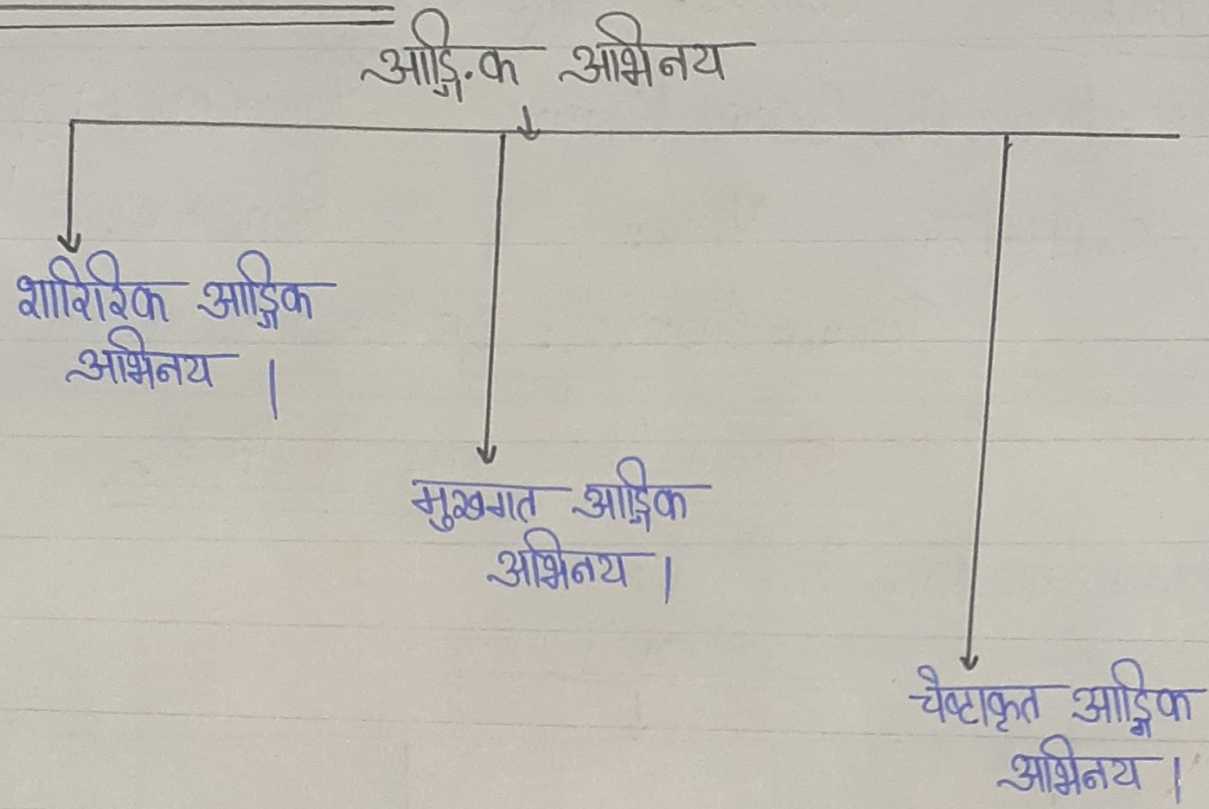 आङ्गि.क अभिनय
शारिरिक आङ्गिक
अभिनय |
मुखगत आङ्गिक
अभिनय |
चेष्टाकृत आङ्गिक
अभिनय |